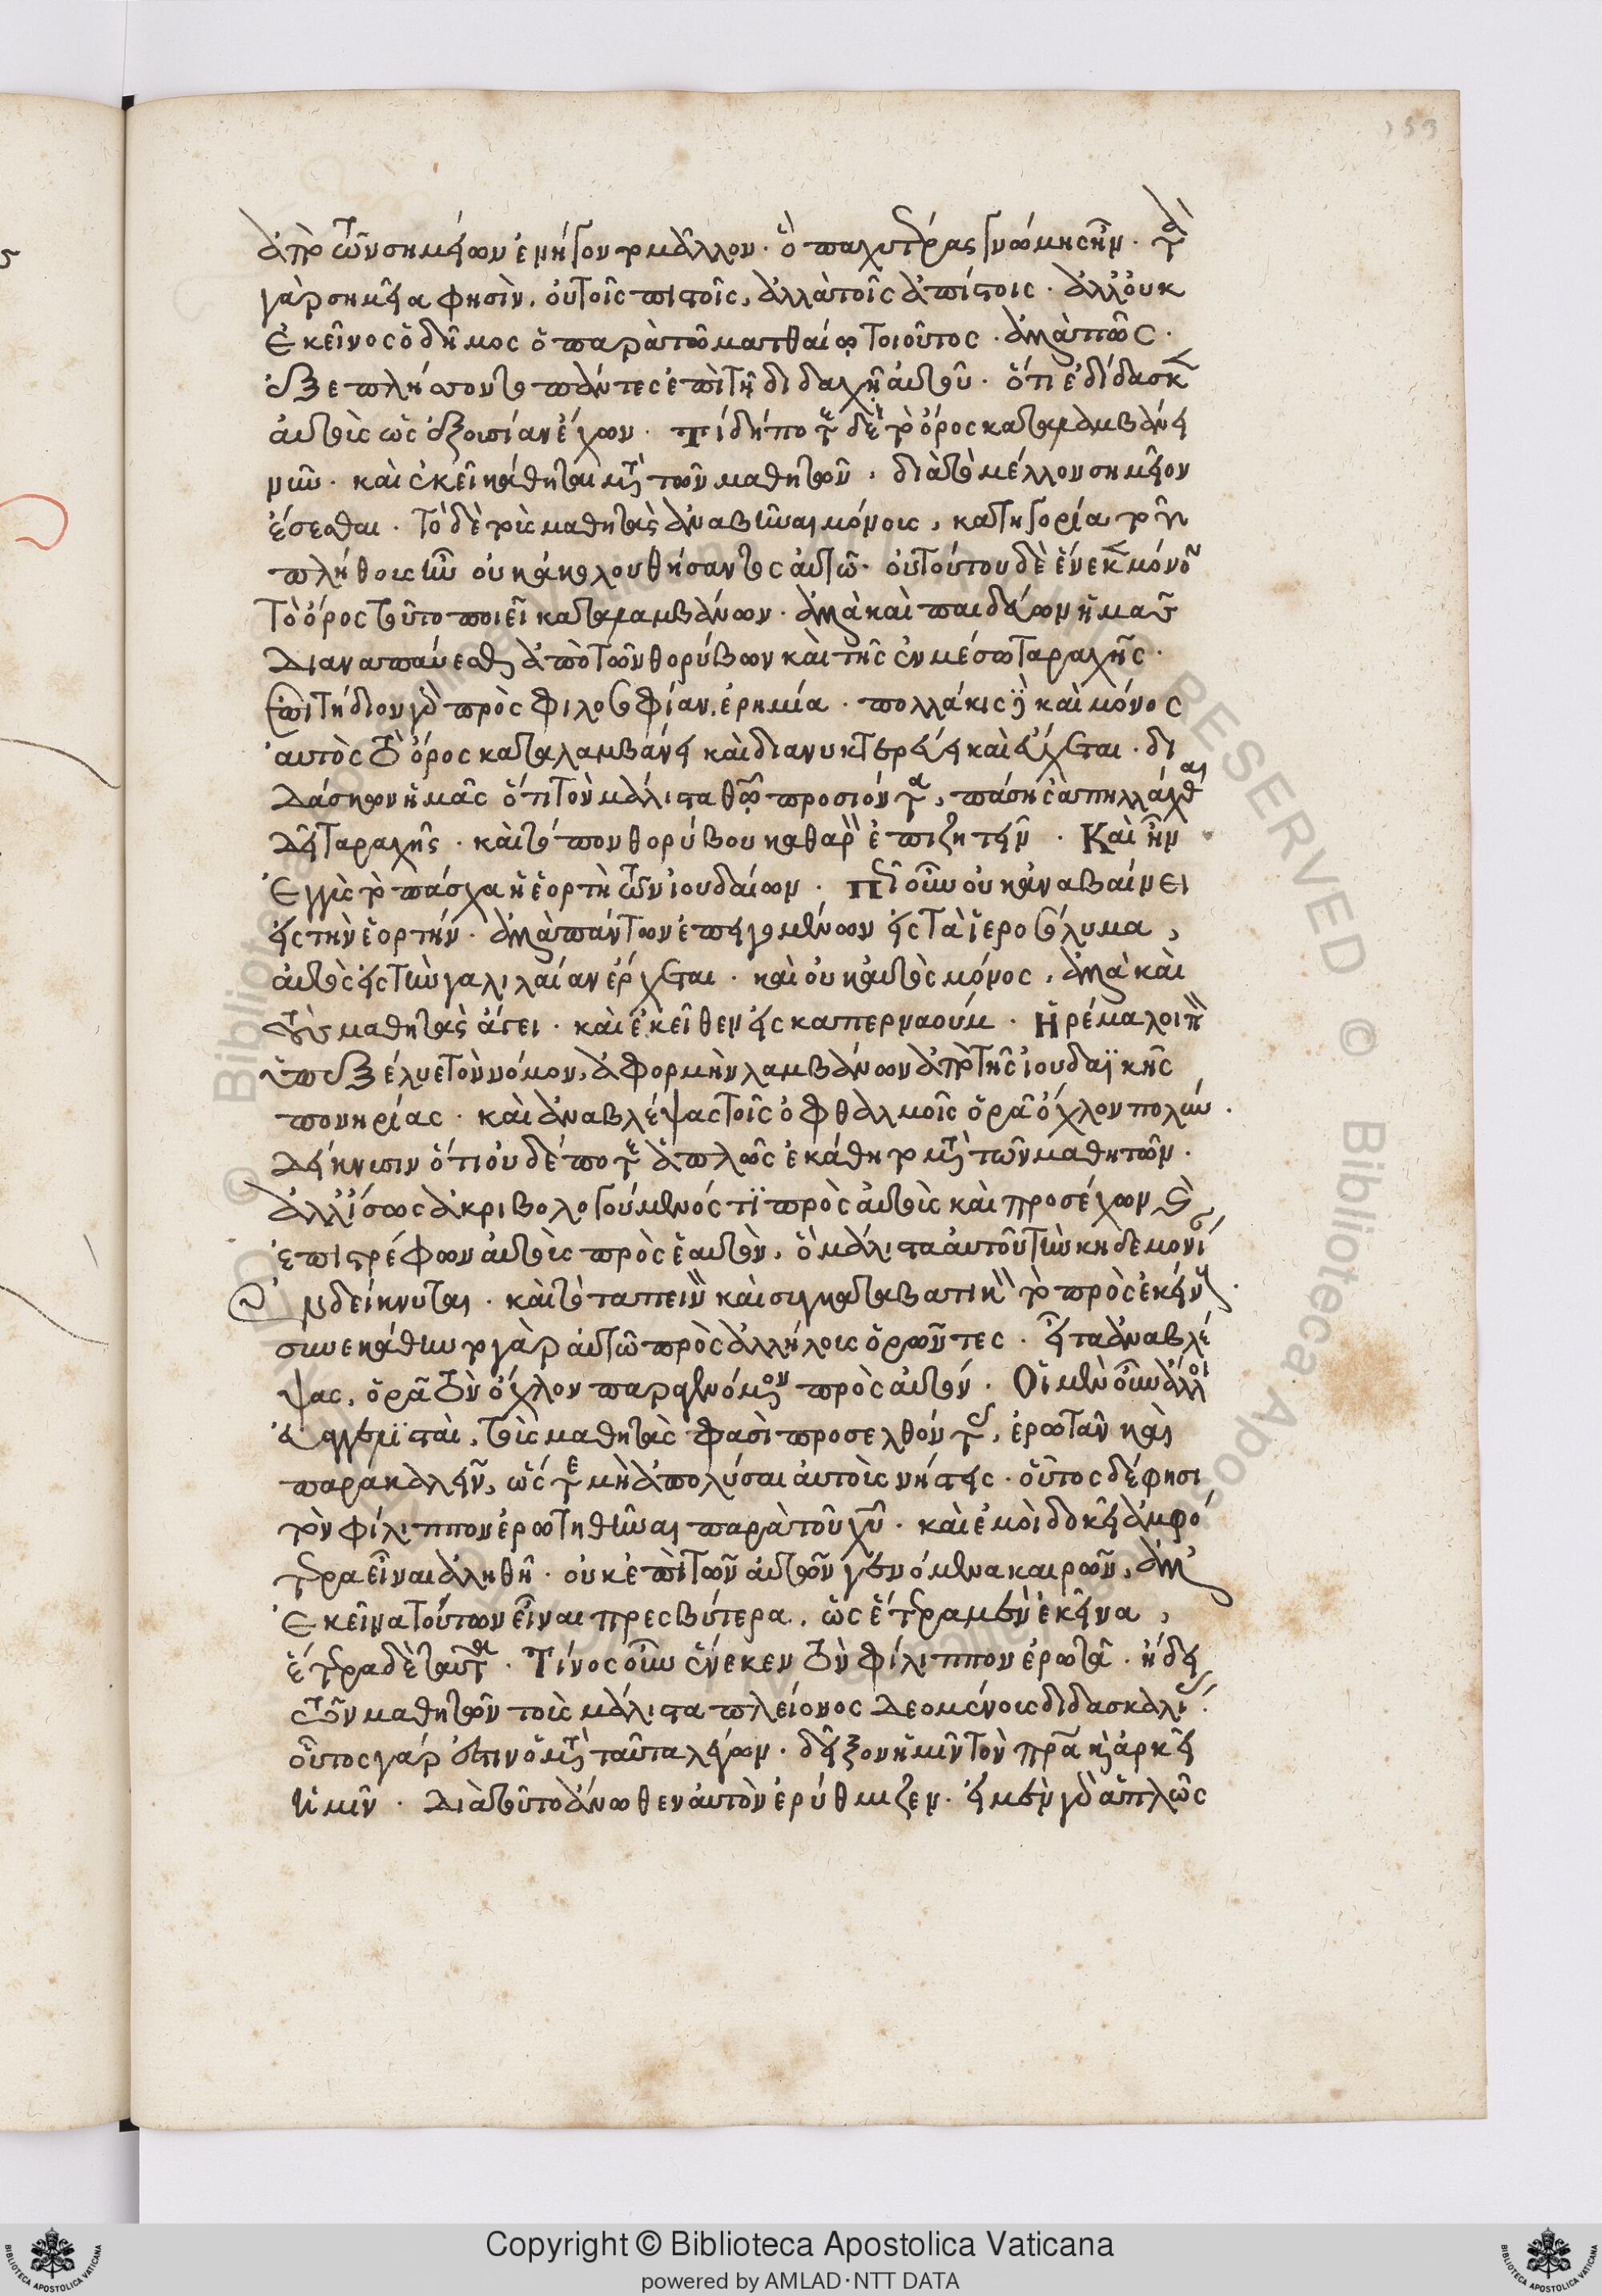 ἀπὸ τῶν σημείων ἐνήγοντο μᾶλλον· ὃ παχυτέρας γνώμης ἦν· τὰ
γὰρ σημεῖα φησὶν, οὐ τοῖς πιστοῖς, ἀλλὰ τοῖς ἀπίστοις· ἀλλ' οὐκ
ἐκεῖνος ὁ δῆμος ὁ παρὰ τῶ ματθαίω τοιοῦτος· ἀλλὰ πῶς·
ἐξεπλήσσοντο πάντες ἐπὶ τῆ διδαχῆ αὐτοῦ· ὅτι ἐδίδασκεν
αὐτοὺς ὡς ἐξουσίαν ἔχων· τί δήποτε δὲ τὸ ὄρος καταλαμβάνει
νῦν· καὶ ἐκεῖ κάθηται μετὰ τῶν μαθητῶν, διὰ τὸ μέλλον σημεῖον
ἔσεσθαι· τὸ δὲ τοὺς μαθητὰς ἀναβῆναι μόνους, κατηγορία τοῦ
πλήθους ἦν οὐκ ἀκολουθήσαντος αὐτῶ· οὐ τούτου δὲ ἕνεκεν μόνον
τὸ ὄρος τοῦτο ποιεῖ καταλαμβάνων· ἀλλὰ καὶ παιδεύων ἡμᾶς
διαναπαύεσθαι ἀπὸ τῶν θορύβων καὶ τῆς ἐν μέσω ταραχῆς·
ἐπιτήδειον γὰρ πρὸς φιλοσοφίαν, ἐρημία· πολλάκις δὲ καὶ μόνος
αὐτὸς τὸ ὄρος καταλαμβάνει καὶ διανυκτερεύει καὶ εὔχεται· δι
δάσκων ἡμᾶς ὅτι τὸν μάλιστα θεῶ προσιόντα, πάσης ἀπηλλάχθαι
δεῖ ταραχῆς· καὶ τόπον θορύβου καθαρὸν ἐπιζητεῖν· Καὶ ἦν
ἐγγὺς τὸ πάσχα ἡ ἑορτὴ τῶν ἰουδαίων· πῶς οὖν οὐκ ἀναβαίνει
εἰς τὴν ἑορτήν· ἀλλὰ πάντων ἐπειγομένων εἰς τὰ ἱεροσόλυμα,
αὐτὸς εἰς τὴν γαλιλαίαν ἔρχεται· καὶ οὐκ αὐτὸς μόνος, ἀλλὰ καὶ
τοὺς μαθητὰς ἄγει· καὶ ἐκεῖθεν εἰς καπερναούμ· Ἠρέμα λοιπὸν
ὑπεξέλυε τὸν νόμον, ἀφορμὴν λαμβάνων ἀπὸ τῆς ἰουδαϊκῆς
πονηρίας· καὶ ἀναβλέψας τοῖς ὀφθαλμοῖς ὁρᾶ ὄχλον πολύν·
δείκνυσιν ὅτι οὐδέποτε ἁπλῶς ἐκάθητο μετὰ τῶν μαθητῶν·
ἀλλ' ἴσως ἀκριβολογούμενός τι πρὸς αὐτοὺς καὶ προσέχων καὶ
ἐπιστρέφων αὐτοὺς πρὸς ἑαυτὸν, ὃ μάλιστα αὐτοῦ τὴν κηδεμονίαν
ἐνδείκνυται· καὶ τὸ ταπεινὸν καὶ συγκαταβατικὸν τὸ πρὸς ἐκείνους·
συνεκάθηντο γὰρ αὐτῶ πρὸς ἀλλήλους ὁρῶντες· εἶτα ἀναβλέ
ψας, ὁρᾶ τὸν ὄχλον παραγενόμενον πρὸς αὐτόν· Οἱ μὲν οὖν ἄλλοι
εὐαγγελισταὶ, τοὺς μαθητὰς φασὶ προσελθόντας, ἐρωτᾶν καὶ
παρακαλεῖν, ὥστε μὴ ἀπολῦσαι αὐτοὺς νήστεις· οὗτος δέ φησι
τὸν φίλιππον ἐρωτηθῆναι παρὰ τοῦ χυ· καὶ ἐμοὶ δοκεῖ ἀμφό
τερα εἶναι ἀληθῆ· οὐκ ἐπὶ τῶν αὐτῶν γενόμενα καιρῶν, ἀλλ'
ἐκεῖνα τούτων εἶναι πρεσβύτερα, ὡς ἕτερα μὲν ἐκεῖνα,
ἕτερα δὲ ταῦτα· Τίνος οὖν ἕνεκεν τὸν φίλιππον ἐρωτᾶ· ἤδει
τῶν μαθητῶν τοὺς μάλιστα πλείονος δεομένους διδασκαλίας·
οὗτος γάρ ἐστιν ὁ μετὰ ταῦτα λέγων· δεῖξον ἡμῖν τὸν πρα καὶ ἀρκεῖ
ἡμῖν· διὰ τοῦτο ἄνωθεν αὐτὸν ἐρύθμιζεν· εἰ μὲν γὰρ ἁπλῶς